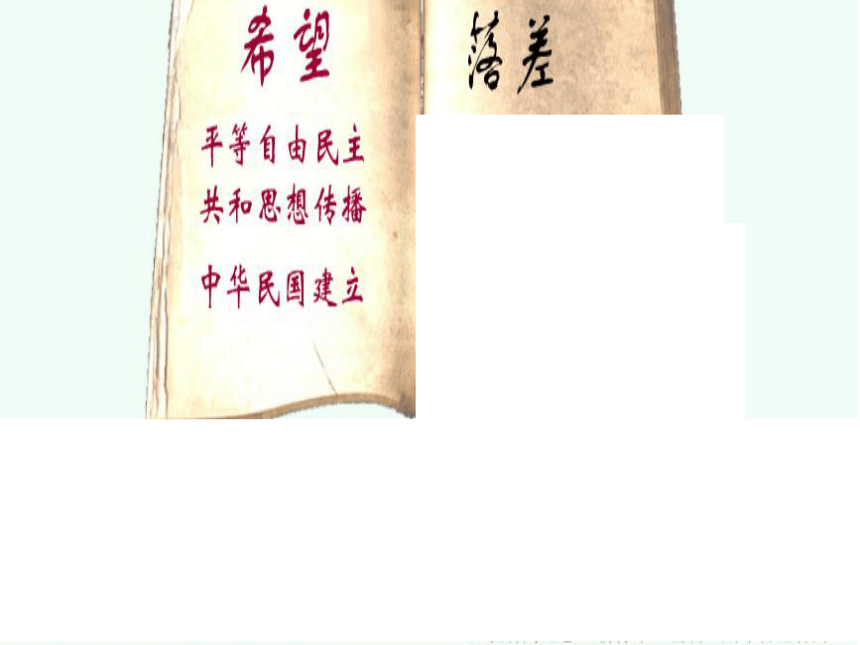 希望
平等自由民主
共和思想传播
中华民国建立
落差